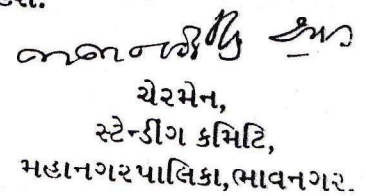 ચેરમેન,
સ્ટેન્ડીંગ કમિટિ,
મહાનગરપાલિકા,ભાવનગર.